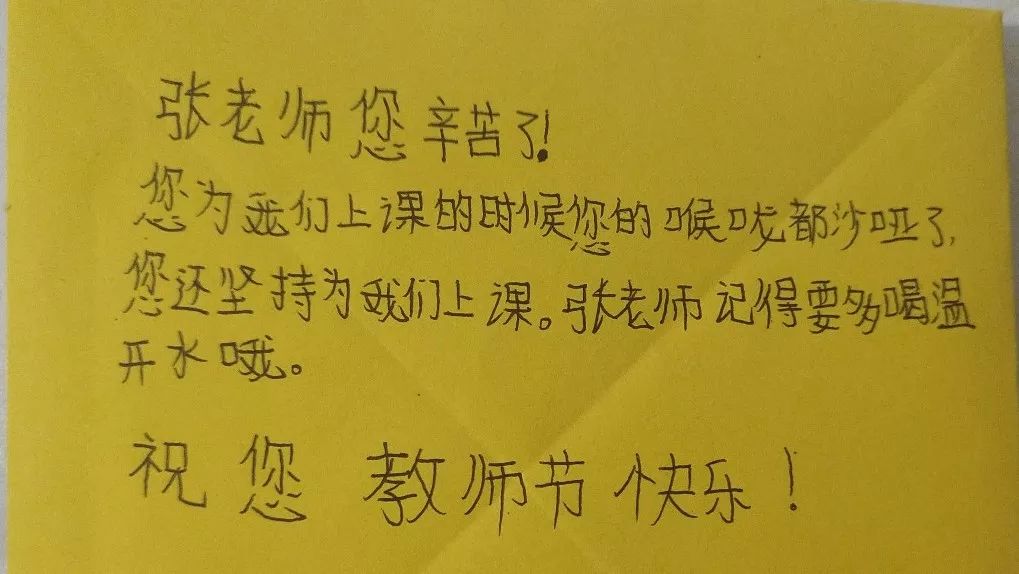 张老师您辛苦了!
您为我们上课的时候您的喉咙都沙哑了,
您还坚持为我们上课。张老师记得要多喝温
开水哦。
祝您教师节快乐!